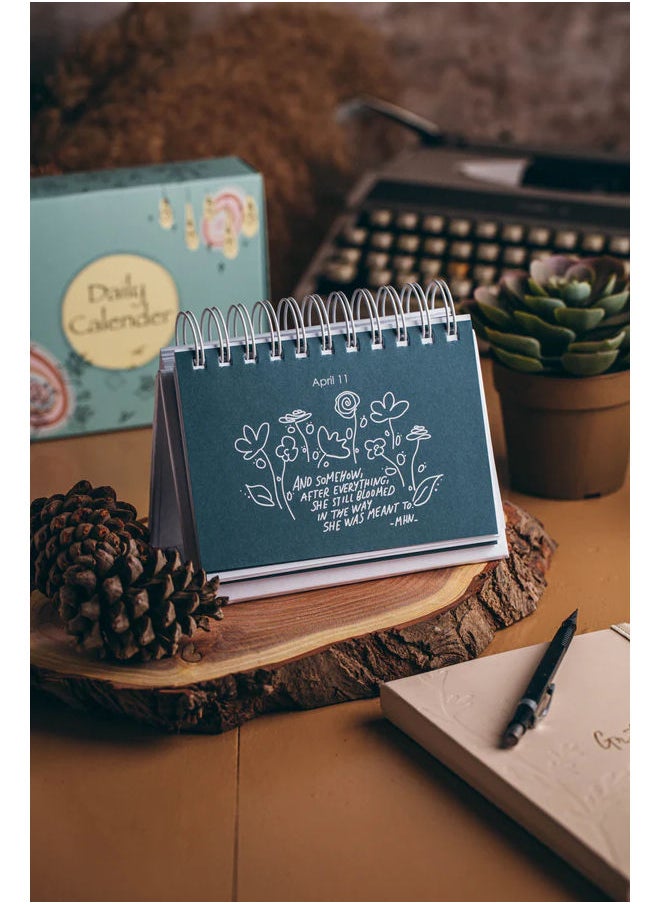 Daily
Calender
April 11
AND SOMEHOW,
AFTER EVERYTHING,
SHE STILL BLOOMED
IN THE WAY
SHE WAS MEANT TO.
-MHN-